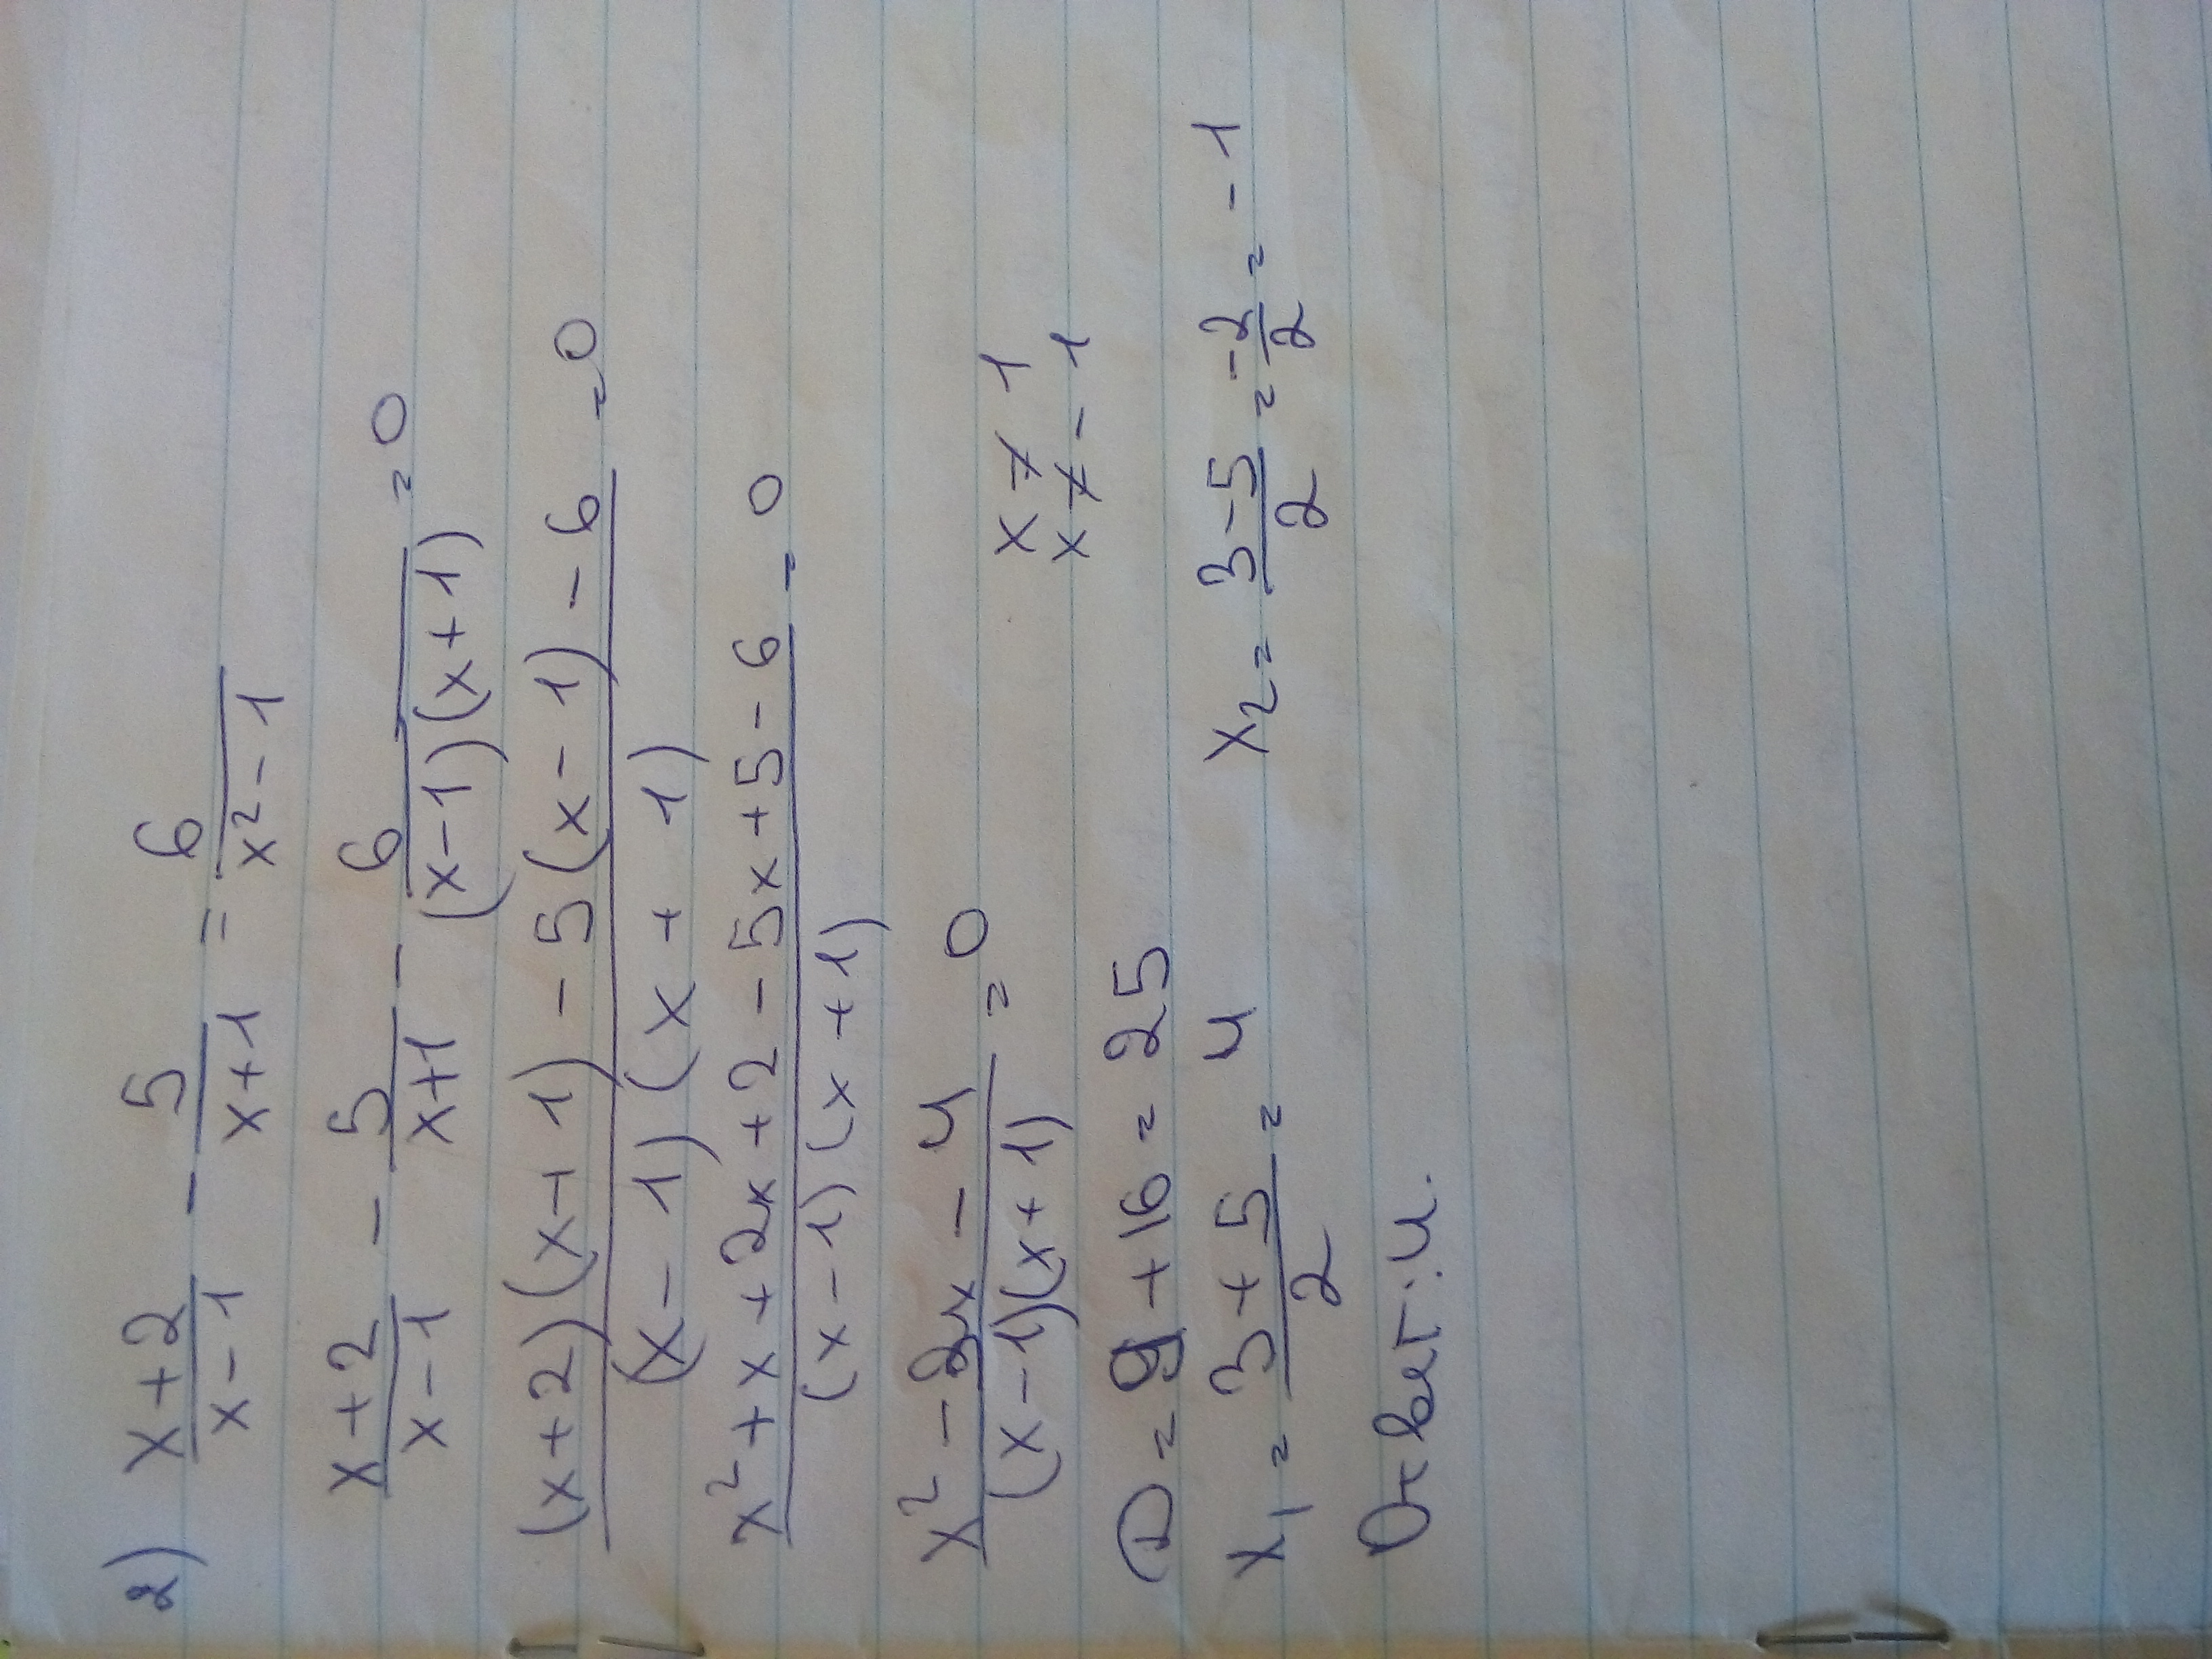 2) (x+2)/(x-1) - 5/(x+1) = 6/(x²-1)
(x+2)/(x-1) - 5/(x+1) - 6/((x-1)(x+1)) = 0
((x+2)(x+1) - 5(x-1) - 6)/((x-1)(x+1)) = 0
(x²+x+2x+2-5x+5-6)/((x-1)(x+1)) = 0
(x²-2x-4)/((x-1)(x+1)) = 0
x ≠ 1
x ≠ -1
D = 9+16 = 25
x₁ = (3+5)/2 = 4 x₂ = (3-5)/2 = -2/2 = -1
Ответ: 4.